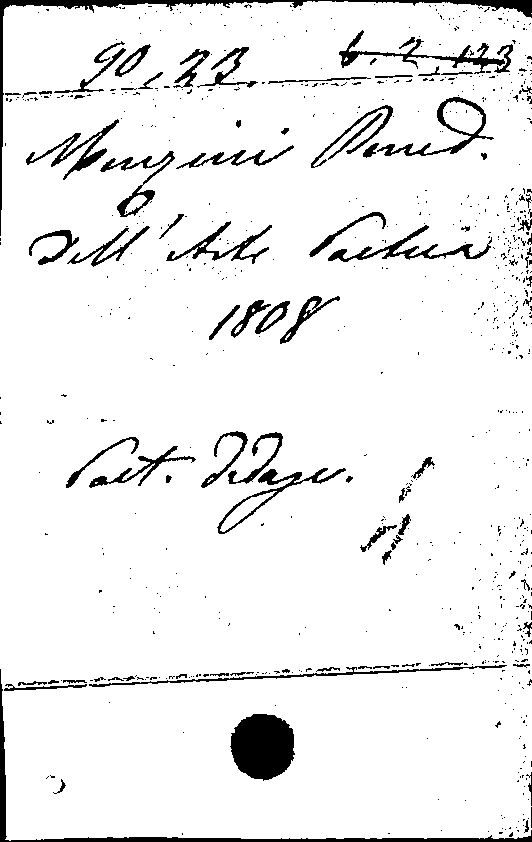 90, 23. 6. 2. 123
Menzini Bened.
Dell' Arte Poetica
1808
Poet. Didasc.